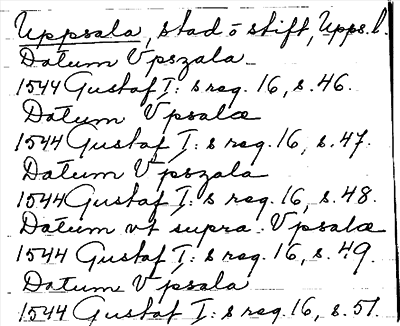 Uppsala, stad o stift, Upps. l.
Datum Vpszala
1544 Gustaf I: s reg. 16, s. 46.
Datum Vpsalæ
1544 Gustaf I: s reg. 16, s. 47.
Datum Vpszala
1544 Gustaf I: s reg. 16, s. 48.
Datum vt supra. Vpsalæ
1544 Gustaf I: s reg. 16, s. 49.
Datum Vpsala
1544 Gustaf I: s reg. 16, s. 51.